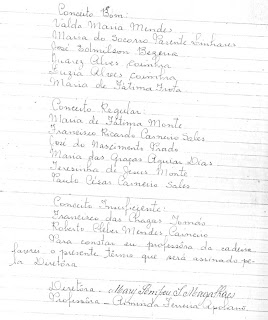 Conceito Bom.
Valda Maria Mendes
Maria do Socorro Parente Linhares
José Edmilson Bezerra
Juarez Alves Coimbra
Luzia Alves Coimbra
Maria de Fátima Frota
Conceito Regular
Maria de Fátima Monte
Francisco Ricardo Carneiro Sales
José do Nascimento Prado
Maria das Graças Aguiar Dias
Teresinha de Jesus Monte
Paulo César Carneiro Sales
Conceito Insuficiente:
Francisco das Chagas
Roberto Cleber Mendes Carneiro
Para constar eu professôra da cadeira
lavrei o presente têrmo que será assinado pe-
la Diretora
Diretora - Magalhães
Professôra - Arminda